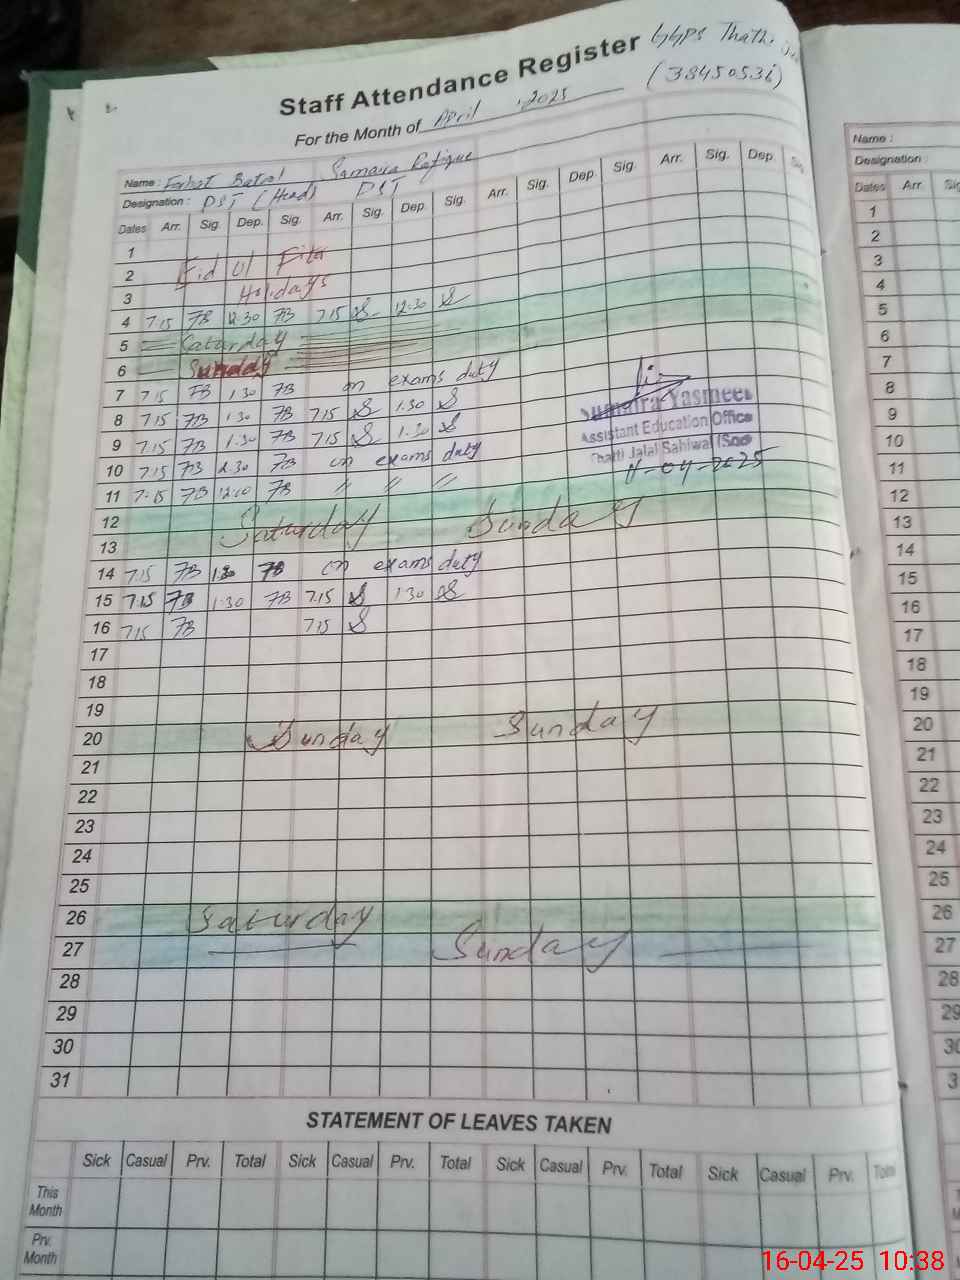 Staff Attendance Register GGPS Thathi
For the Month of April, 2025 (38450536)
Name : Farhat Batol Samaira Rafique
Designation : PST (Head) PST
Dates Arr. Sig. Dep. Sig. Arr. Sig. Dep. Sig. Arr. Sig. Dep Sig. Arr. Sig. Dep Sig.
1
2 Eid Ul Fitr
3 Holidays
4 7.15 FB 12.30 FB 7.15 S 12.30 S
5 Saturday
6 Sunday
7 7.15 FB 1.30 FB on exams duty
8 7.15 FB 1.30 FB 7.15 S 1.30 S
9 7.15 FB 1.30 FB 7.15 S 1.30 S
10 7.15 FB 1.30 FB on exams duty
11 7.15 FB 12.00 FB // // //
Sumaira Yasmeen
Assistant Education Office
Thatti Jalal Sahiwal (Sgo
11-04-2025
12 Saturday Sunday
13
14 7.15 FB 1.30 FB on exams duty
15 7.15 FB 1.30 FB 7.15 S 1.30 S
16 7.15 FB 7.15 S
17
18
19
20 Sunday Sunday
21
22
23
24
25
26 Saturday
27 Sunday
28
29
30
31
STATEMENT OF LEAVES TAKEN
Sick Casual Prv. Total Sick Casual Prv. Total Sick Casual Prv. Total Sick Casual Prv. Total
This Month
Prv. Month
Name :
Designation :
Dates Arr. Sig
1
2
3
4
5
6
7
8
9
10
11
12
13
14
15
16
17
18
19
20
21
22
23
24
25
26
27
28
29
30
3
16-04-25 10:38